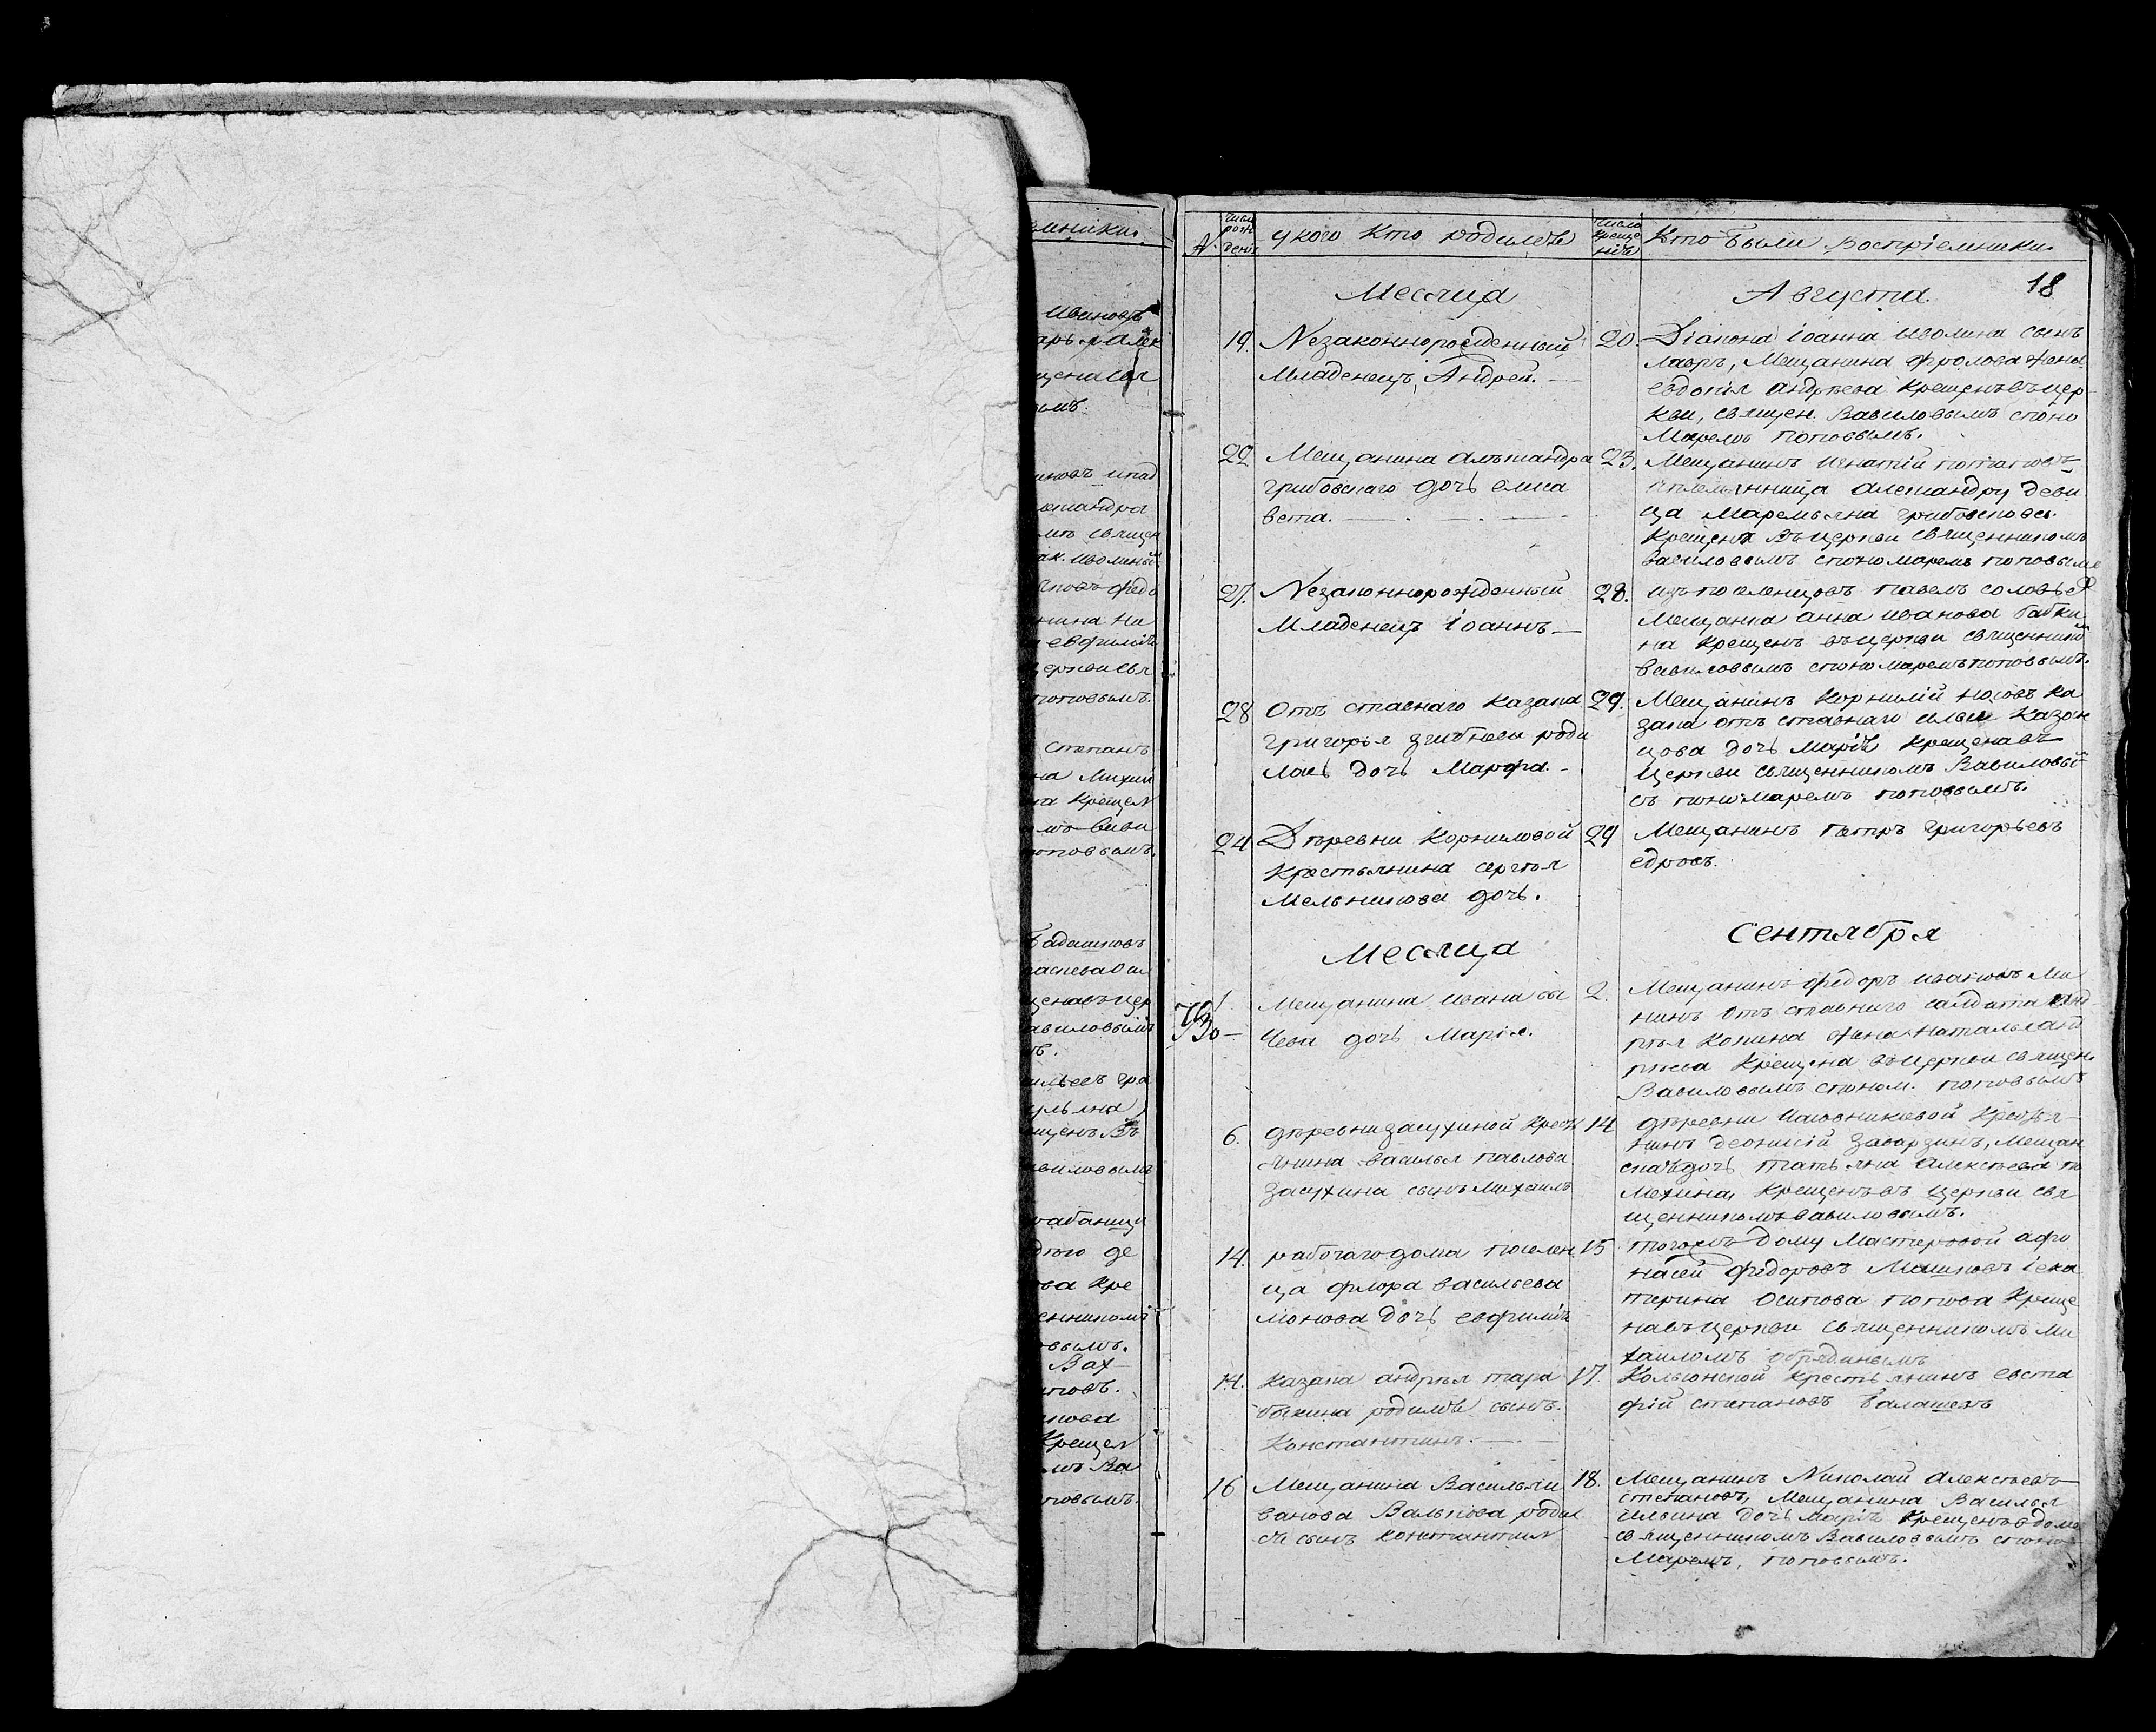 емники.
Ивановъ
арь. и Алек
щена свя
ымъ.
иновъ и пад
лександра
мъ священ
еркви свя
поповымъ.
Степанъ
на Михаи
на крещен
мъ Вави
поповымъ.
Бадашковъ
щена въ цер
авиловымъ
ильевъ гра
ульяна
щенъ въ
авиловымъ
ва кре
енникомъ
овымъ.
Вах
повъ.
Крещен
мъ Ва
повымъ.
№ Число рожденъ
У кого кто родился
Число крещенія
Кто были воспріемники.
18
Месяца
Августа.
19. Незаконнорожденный
Младенецъ, Андрей.
20. Діакона Іоанна Изволина сынъ
Лавръ, Мещанина Фролова жена
Евдокія Андрѣева крещенъ въ цер
кви, священ. Вавиловымъ с поно
Маремъ Поповымъ.
22 Мещанина Александра
Грибовскаго дочь Елиса
вета.
23. Мещанинъ Игнатій Потаповъ
Александру деви
ца Маремьяна Грибовскова.
Крещена въ церкви священникомъ
Вавиловымъ с пономаремъ Поповымъ
27. Незаконнорожденный
Младенецъ Іоаннъ
28. Изъ поселенцовъ Павелъ Соловьев
Мещанка Анна Иванова Бабки
на крещенъ въ церкви священником
Вавиловымъ с пономаремъ Поповымъ.
28 Отъ ставнаго Казака
Григорья роди
лась дочь Марфа.
29. Мещанинъ Корнилій Носовъ Ка
зака отъ ставнаго Ильи Казан
цова дочь Марія крещена въ
церкви священникомъ Вавиловы
съ пономаремъ Поповымъ.
24 Дѣревни Корниловой
Крестьянина Сергѣя
Мельникова дочь.
29 Мещанинъ Петръ Григорьевъ
Едровъ.
Месяца
Сентября
1 Мещанина Ивана Сы
чева дочь Марія.
2. Мещанинъ Федоръ Ивановъ Ми
нинъ отъ ставнаго салдата Анд
рѣя Копина жена Наталья Анд
рѣева крещена въ церкви священ.
Вавиловымъ с поном. Поповымъ
6. Дѣревни Засухиной Кресть
янина Василья Павлова
Засухина сынъ Михаилъ
14 Дѣревни Кресья
нинъ Деонисій Заварзинъ, Мещан
ска дочь Татьяна Алексѣева По
мехина, крещенъ въ церкви свя
щенникомъ Вавиловымъ.
14. Рабочаго дома поселен
ца Флора Васильева
дочь Евфимія
15 Тогожъ дому Мастеровой Афо
насей Федоровъ Машковъ і Ека
терина Осипова Попова креще
на въ церкви священникомъ Ми
хаиломъ
14. Казака Андрѣя Тара
быкина родился сынъ.
Константинъ.
17. Крестьянинъ Евста
фій Степановъ Балашевъ
16 Мещанина Василья И
ванова Валькова родил
ся сынъ Константин
18. Мещанинъ Николай Алексѣевъ
Степановъ, Мещанина Василья
Ильина дочь Марія крещенъ в доме
священникомъ Вавиловымъ с поно
Маремъ, Поповымъ.